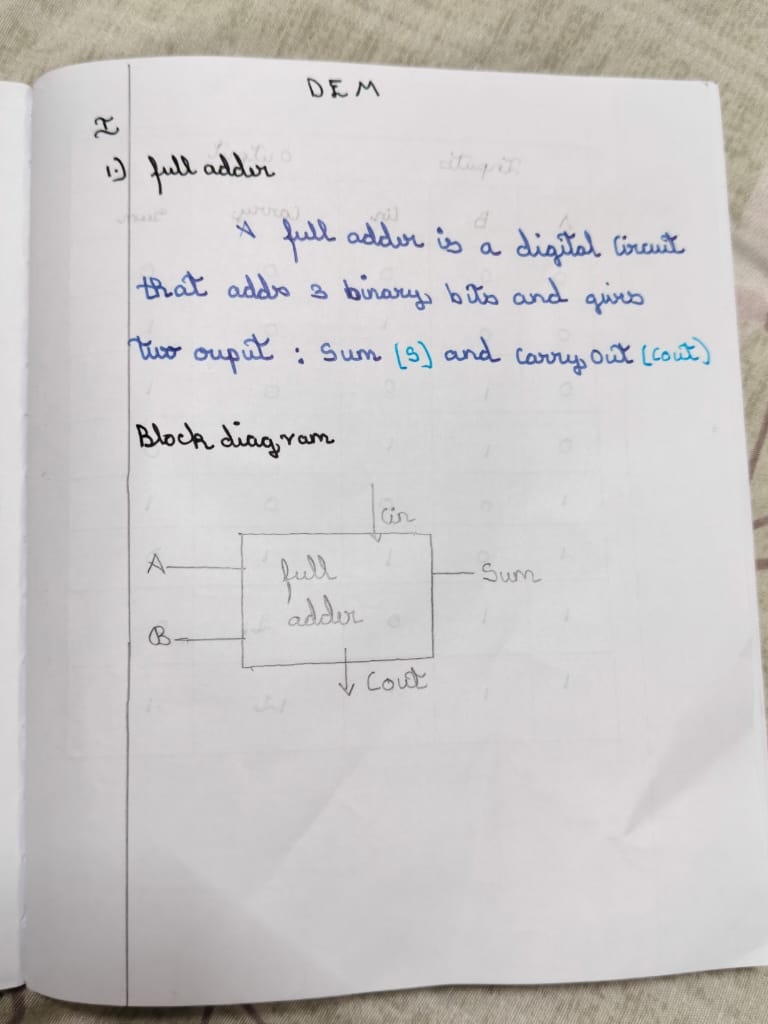 DEM
I
1.) full adder
A full adder is a digital Circuit
that adds 3 binary bits and gives
two ouput : Sum (S) and Carry out (Cout)
Block diagram
Cin
A
full
Sum
adder
B
Cout